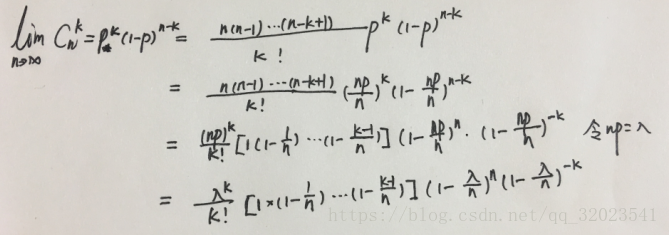 lim n→∞ C_n^k = P^k (1-p)^{n-k} = n(n-1)⋯(n-k+1) / k! p^k (1-p)^{n-k}
= n(n-1)⋯(n-k+1) / k! (np/n)^k (1-np/n)^{n-k}
= (np)^k / k! [1(1-1/n)⋯(1-k-1/n)] (1-np/n)^n · (1-np/n)^{-k} 令np=λ
= λ^k / k! [1×(1-1/n)⋯(1-k-1/n)] (1-λ/n)^n (1-λ/n)^{-k}
https://blog.csdn.net/qq_32023541